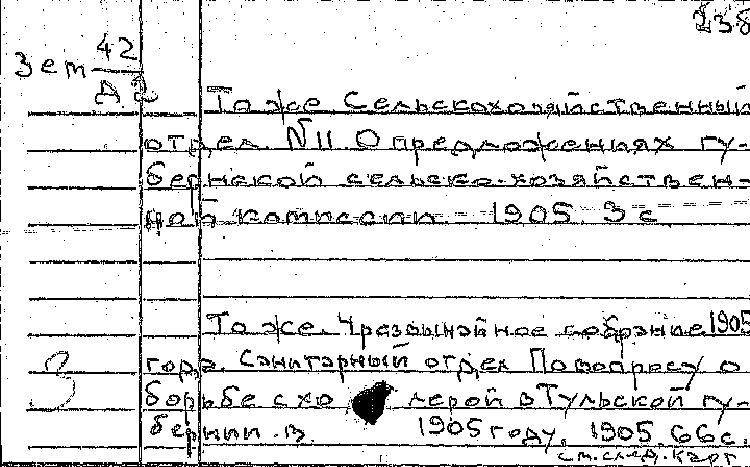 238
Зет 42
Д.2
То же Сельскохозяйственный
отдел №11 О предложениях гу-
бернской сельско-хозяйствен-
ной комиссии - 1905 3 с
То же. Чрезвычайное собрание 1905
года. Санитарный отдел По вопросу о
3
борьбе с хо лерой в Тульской гу-
бернии в 1905 году. 1905. 66 с.
см. след. карт